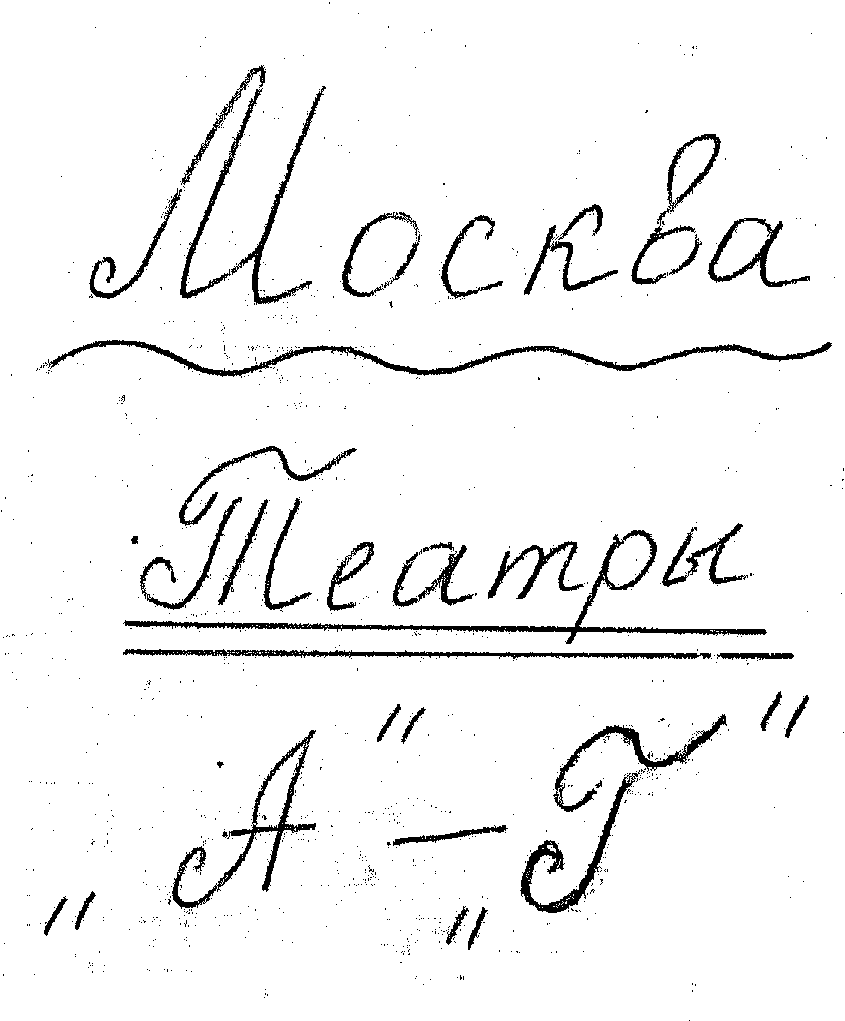 Москва
Театры
„А" – „Г"